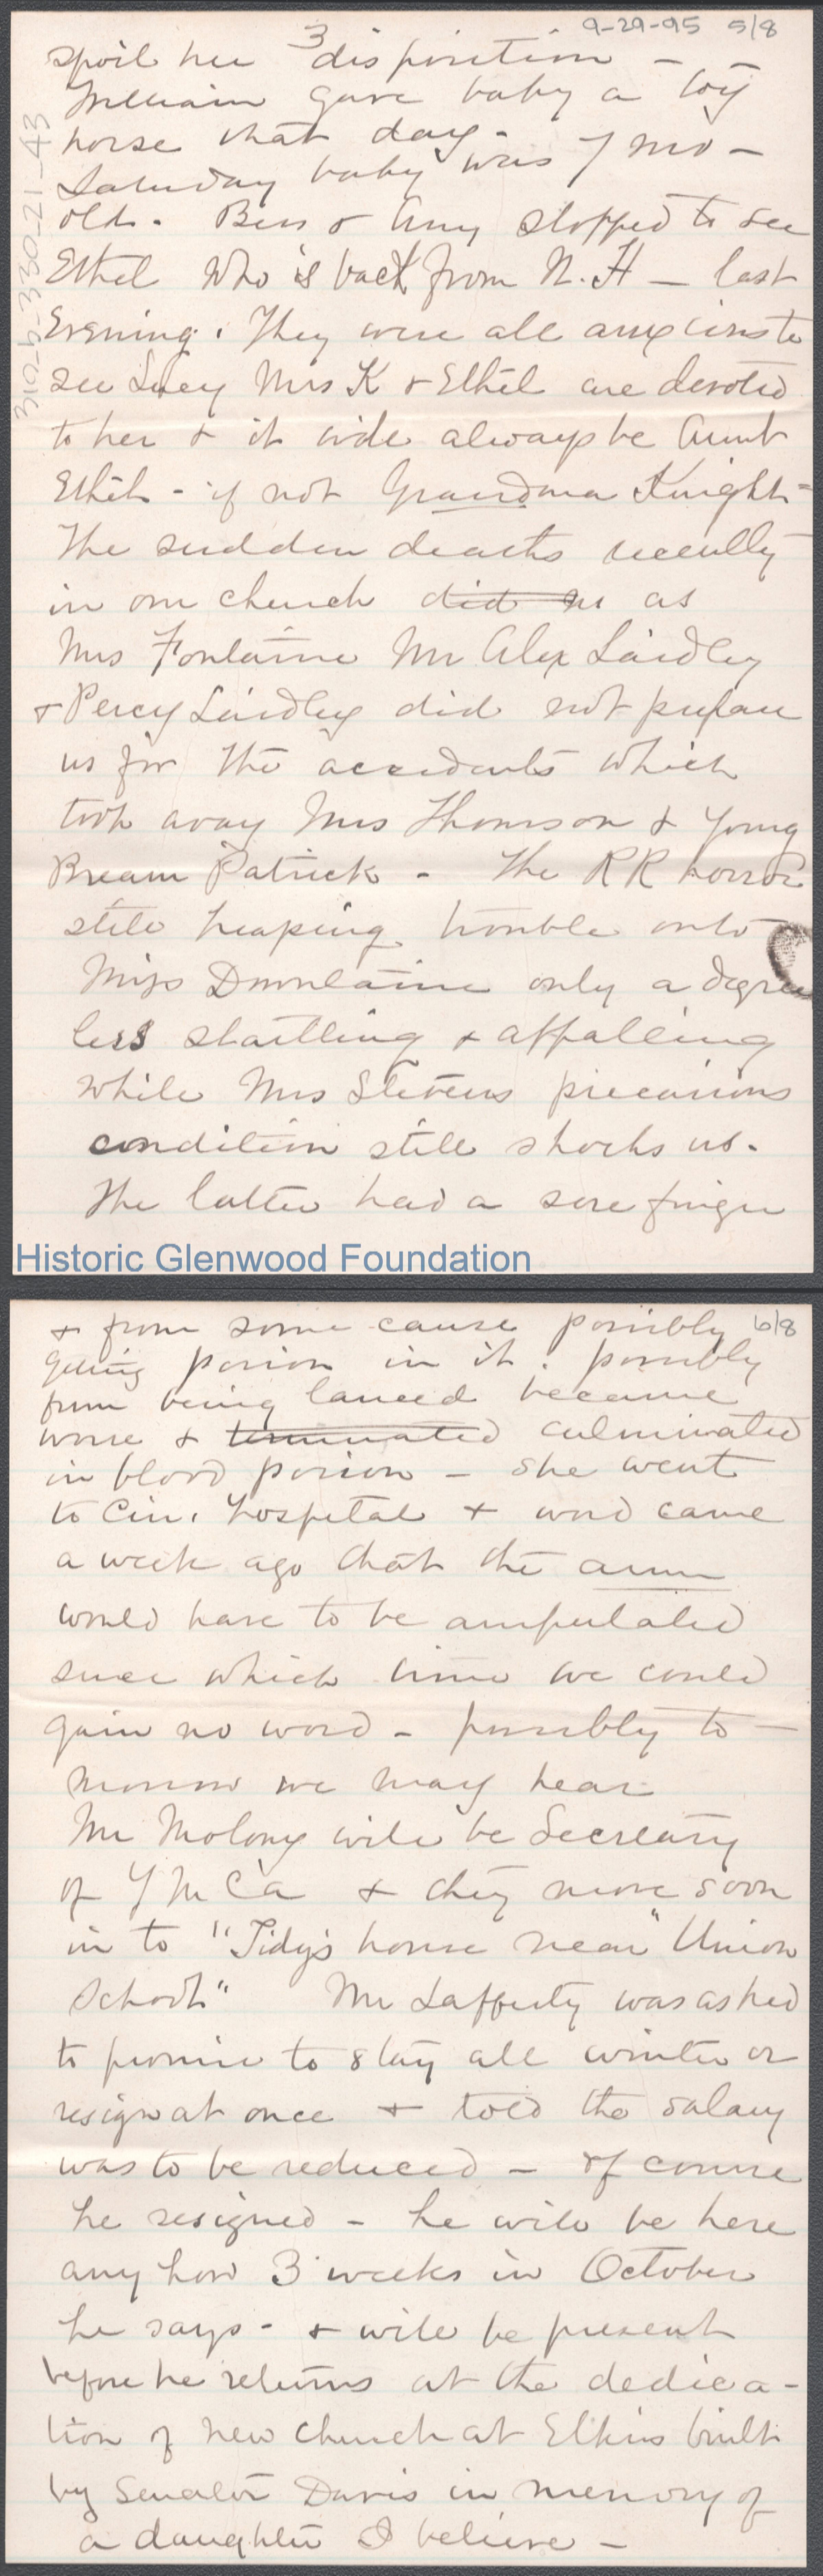 9-29-95 5/8
3
spoil her disposition -
William gave baby a toy
horse that day -
Saturday baby was 7 mo -
old. Bess & Amy stopped to see
Ethel who is back from N. H - last
Evening. They were all anxious to
see Lucy Mrs K & Ethel are devoted
to her & it will always be Aunt
Ethel - if not Grandma Knight -
The sudden deaths recently
in our church did no as
Mrs Fontaine Mr Alex Laidley
& Percy Laidley did not prepare
us for the accidents which
took away Mrs Thomson & Young
Bream Patrick - The RR horror
still heaping trouble onto
Miss only a degree
less startling & appalling
while Mrs Stevens precarious
condition still shocks us.
The latter had a sore finger
310-b-330-21-43
Historic Glenwood Foundation
6/8
& from some cause possibly
getting poison in it. possibly
from being lanced became
worse & terminated culminated
in blood poison - she went
to Cin. hospital & word came
a week ago that the arm
would have to be amputated
since which time we could
gain no word - possibly to -
morrow we may hear
Mr Molony will be Secretary
of Y M C a & they move soon
in to "Tidy's house near "Union
School" Mr Lafferty was asked
to promise to stay all winter or
resign at once & told the salary
was to be reduced - of course
he resigned - he will be here
any how 3 weeks in October
he says - & will be present
before he returns at the dedica -
tion of new church at Elkins built
by Senator Davis in memory of
a daughter I believe -